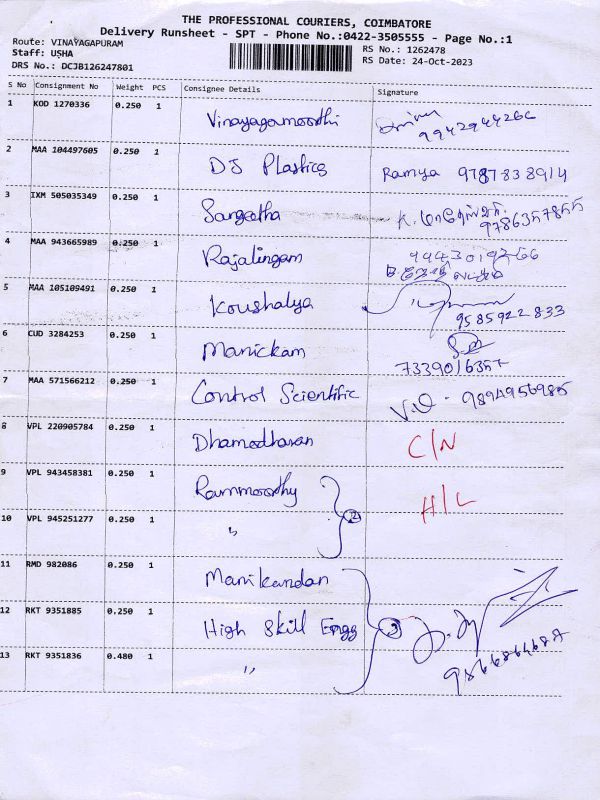 THE PROFESSIONAL COURIERS, COIMBATORE
Delivery Runsheet - SPT - Phone No.:0422-3505555 - Page No.:1
Route: VINAYAGAPURAM
Staff: USHA
DRS No.: DCJB126247801
RS No.: 1262478
RS Date: 24-Oct-2023
S No Consignment No Weight PCS Consignee Details Signature
1 KOD 1270336 0.250 1 Vinayagamoorthi
9942944266
2 MAA 104497605 0.250 1 DJ Plastics Ramya 9787838914
3 IXM 505035349 0.250 1 Sangeetha K.
9786357855
4 MAA 943665989 0.250 1 Rajalingam
5 MAA 105109491 0.250 1 Koushalya
9585922833
6 CUD 3284253 0.250 1 Manickam
7339016357
7 MAA 571566212 0.250 1 Control Scientific 9894956985
8 VPL 220905784 0.250 1 Dhamodharan C/N
9 VPL 943458381 0.250 1 Rammoorthy H/L
10 VPL 945251277 0.250 1 " 2
11 RMD 982086 0.250 1 Manikandan
12 RKT 9351885 0.250 1 High Skill Engg 3
13 RKT 9351836 0.480 1 "